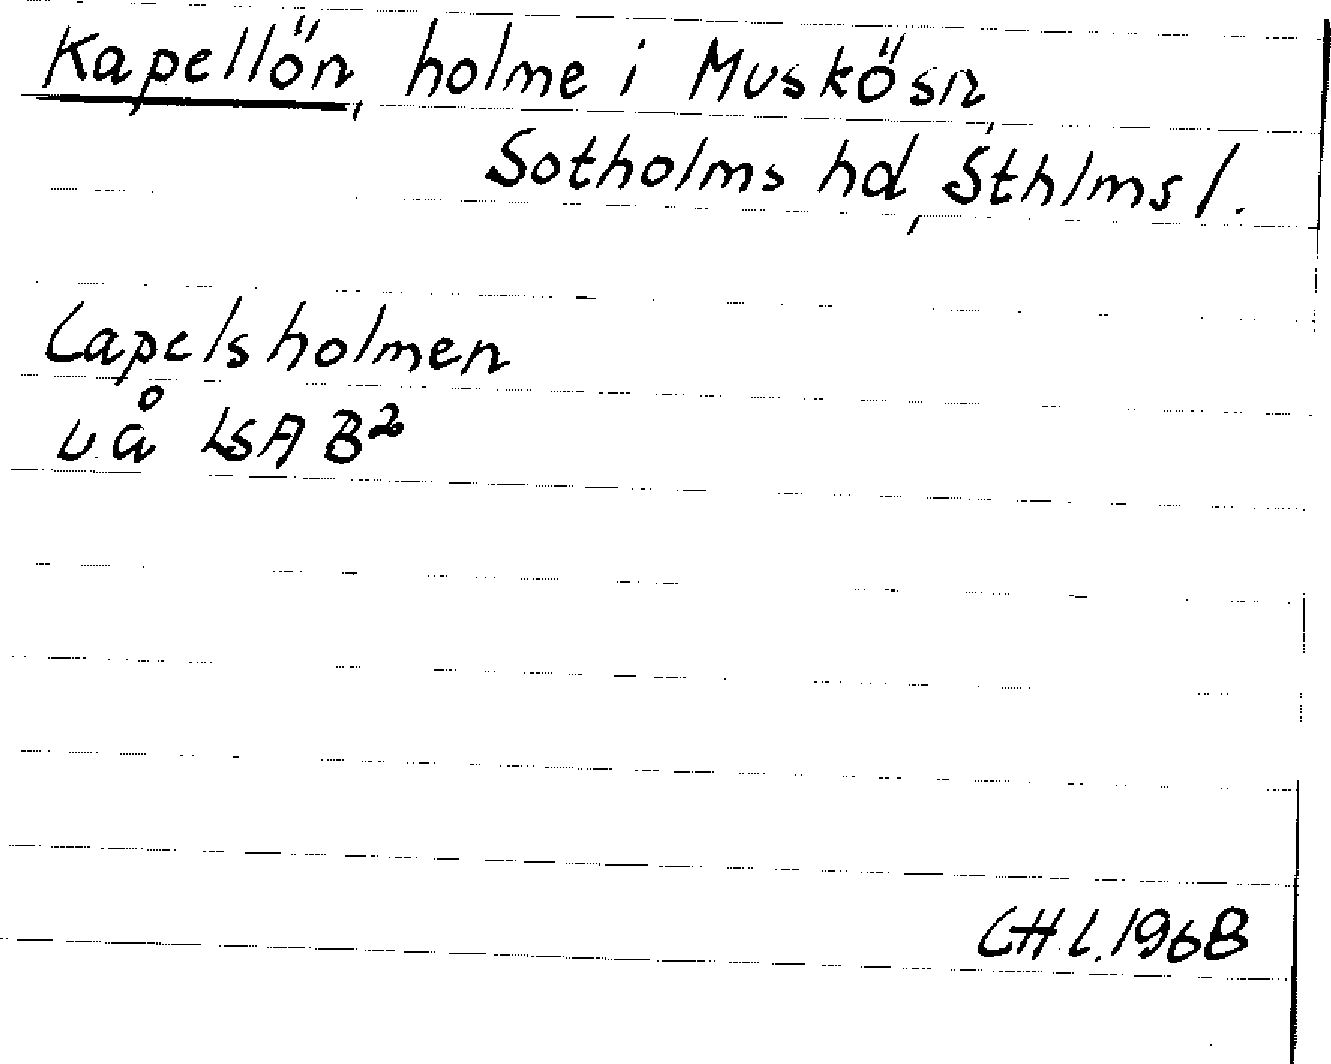 Kapellön, holme i Muskösn,
Sotholms hd, Sthlms l.
Capelsholmen
u å LSA B²
CHL. 1968